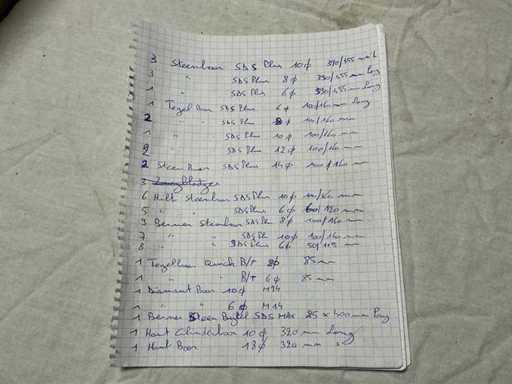 3 Steenboor SDS Plus 10 φ 390/455 mm L
3 " SDS Plus 8 φ 390/455 mm Long
1 " SDS Plus 6 φ 390/455 mm Long
1 Tegel Boor SDS Plus 6 φ 10/160 mm Long
2 " SDS Plus 8 φ 100/160 mm
1 " SDS Plus 10 φ 100/160 mm
2 " SDS Plus 12 φ 100/160 mm
2 Steen Boor SDS Plus 14 φ 100/160 mm
3
6 Hilt Steenboor SDS Plus 10 φ 100/160 mm
5 " SDS Plus 6 φ 60/120 mm
3 Benner Steenboor SDS Plus 8 φ 100/160 mm
7 " " SDS Plus 10 φ 100/160 mm
8 " " SDS Plus 6 φ 50/115 mm
1 Tegelboor Kunch B/T 8 φ 85 mm
1 " " B/T 6 φ 85 mm
1 Diamant Boor 10 φ M14
1 " " 6 φ M14
1 Benner Steen Beytel SDS MAX 25 x 400 mm Long
1 Hout Cilinderboor 10 φ 320 mm Long
1 Hout Boor 18 φ 320 mm "